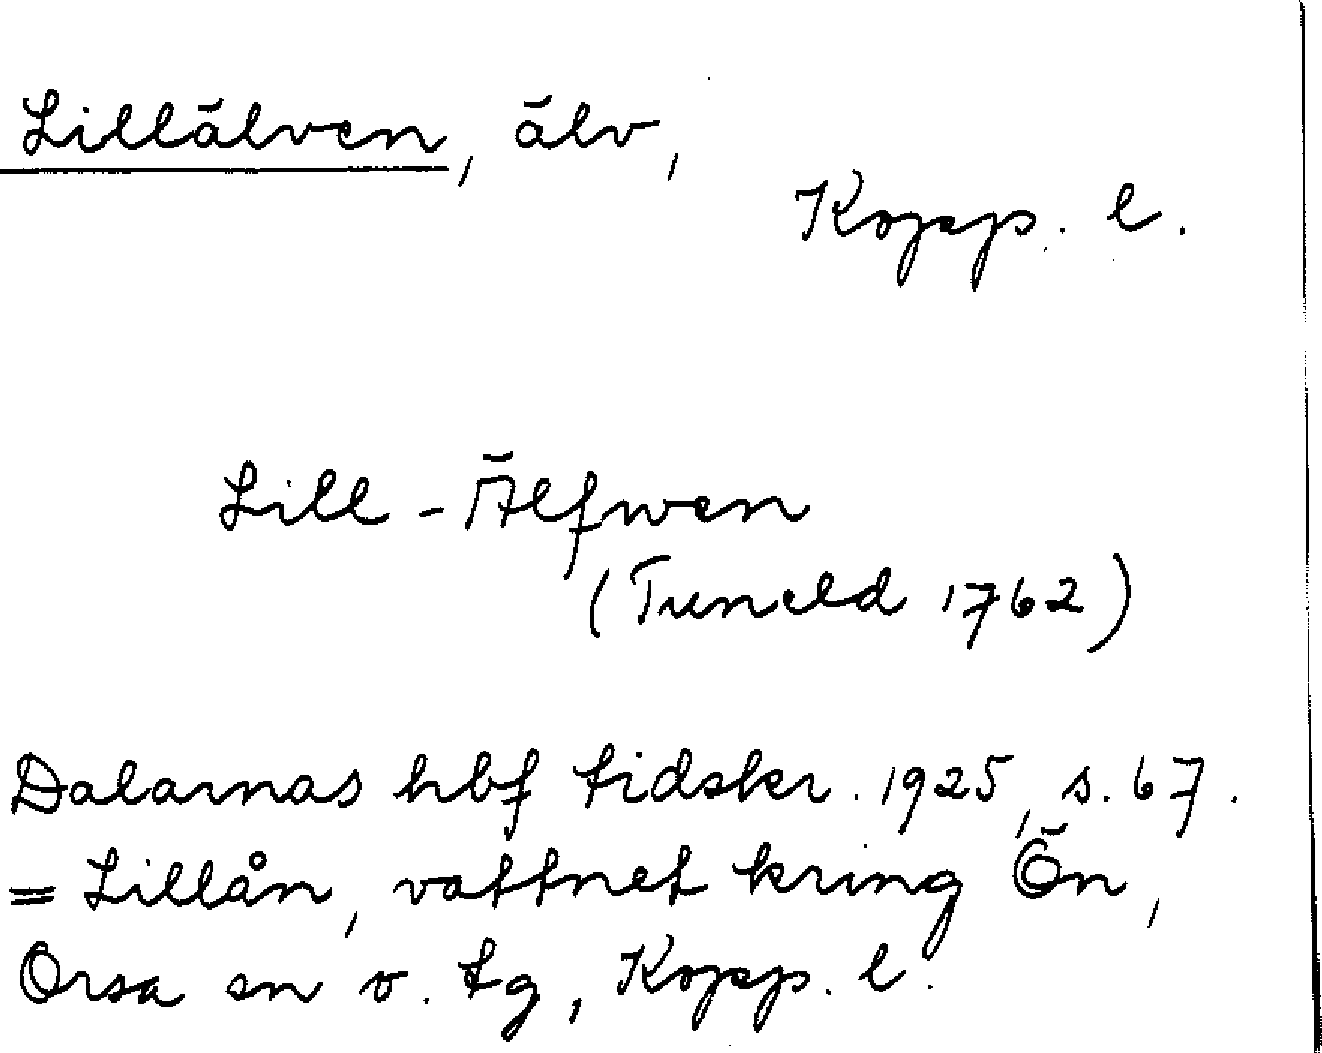 Lillälven, älv,
Kopp. l.
Lill-Älfwen
(Tuneld 1762)
Dalarnas hbf tidskr. 1925, s. 67.
= Lillån, vattnet kring Ön,
Orsa sn o. tg, Kopp. l.